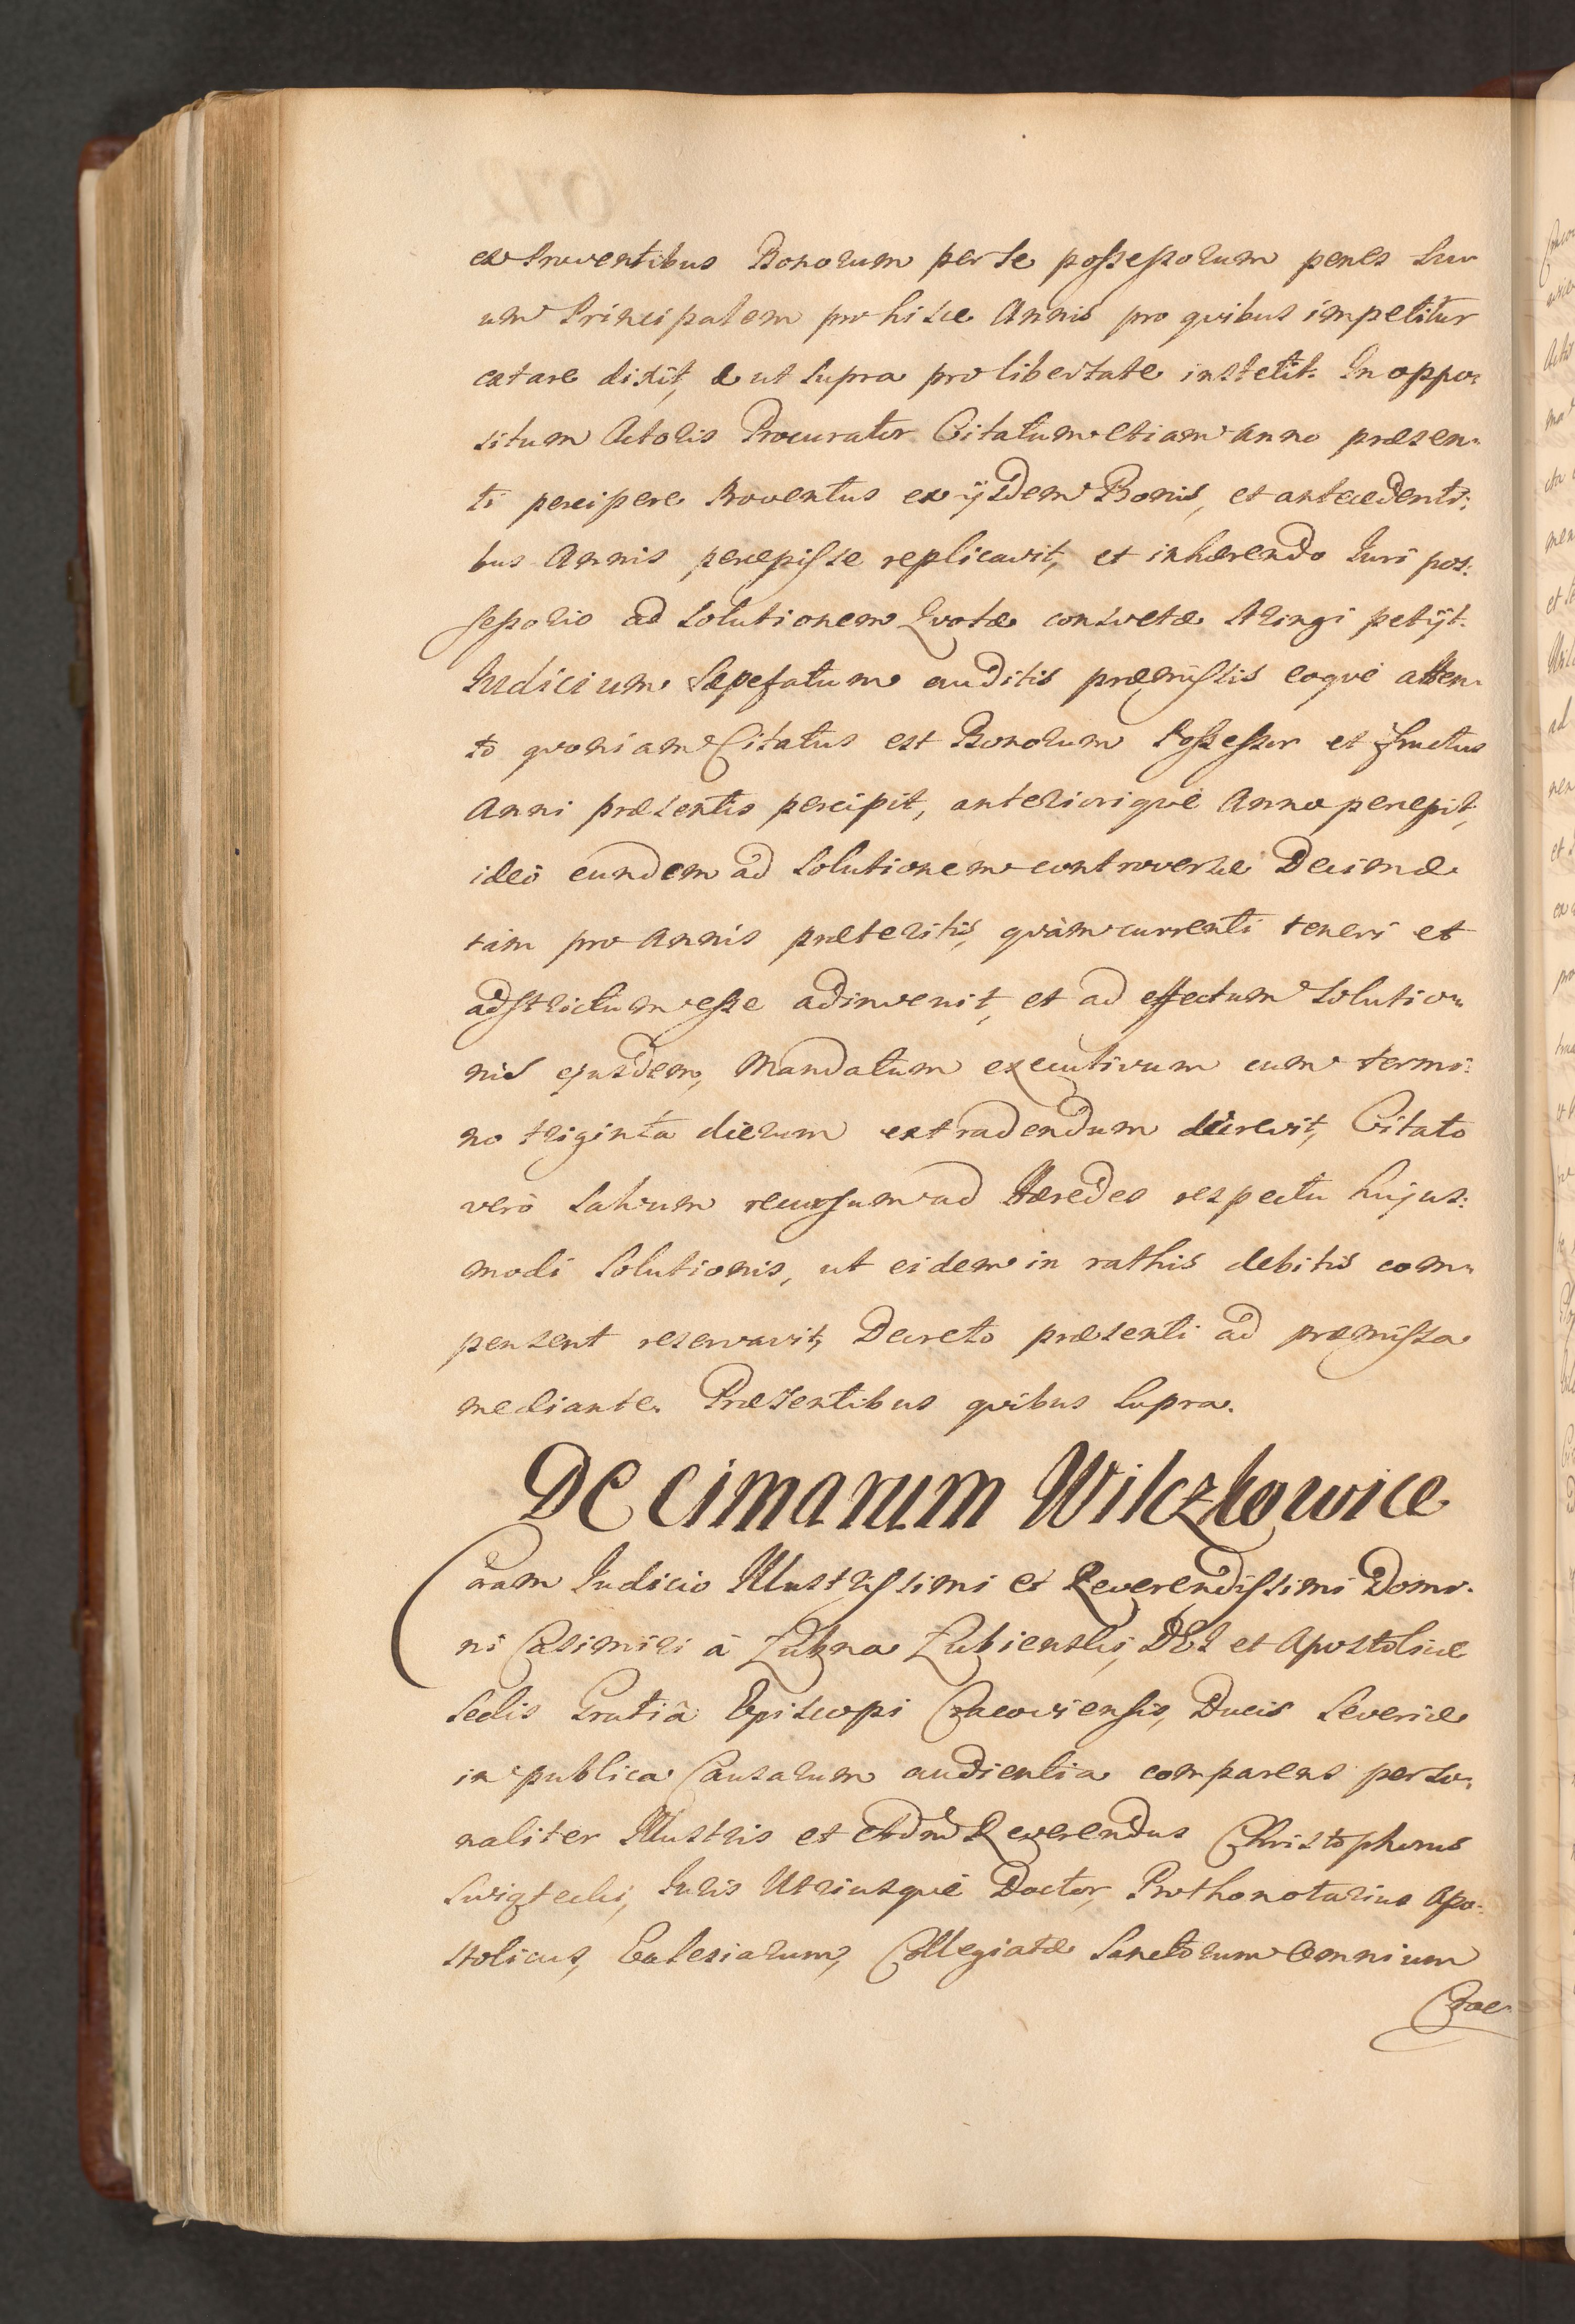 ex Proventibus Bonorum per se possessorum penes Su-
um Principalem pro hisce Annis pro quibus impetitur
extare dixit, & ut supra pro libertate institit. In oppo-
situm Actoris Procurator Citatum etiam anno præsen-
ti percipere Proventus ex ijsdem Bonis, et antecedenti-
bus Annis percepisse replicavit, et inhærendo Iuri pos-
sessorio ad solutionem Quotæ consvetæ stringi petijt.
Iudicium Sæpefatum auditis præmissis eoquè atten-
to quoniam Citatus est Bonorum Possessor et Fructus
Anni præsentis percipit, anterioriquè Anno percepit,
ideò eundem ad solutionem controversæ Decimæ
tàm pro Annis præteritis, quàm currenti teneri et
adstrictum esse adinvenit, et ad effectum solutio-
nis ejusdem, Mandatum executivum cum termi-
no triginta dierum extradendum decrevit, Citato
verò salvum recursum ad Hæredes respectu hujus-
modi solutionis, ut eidem in rathis debitis com-
pensent reservavit, Decreto præsenti ad præmissa
mediante. Præsentibus quibus supra.
Decimarum Wilczkowice
Coram Iudicio Illustrissimi et Reverendissimi Domi-
ni Casimiri à Łubna Łubienski, DEI et Apostolicæ
Sedis Gratiâ Episcopi Cracoviensis, Ducis Severiæ
in publica Causarum audientia comparens perso-
naliter Illustris et Admd Reverendus Christophorus
Swięcicki, Iuris Utriusquè Doctor, Prothonotarius Apo-
stolicus, Ecclesiarum, Collegiatæ Sanctorum Omnium
Crac